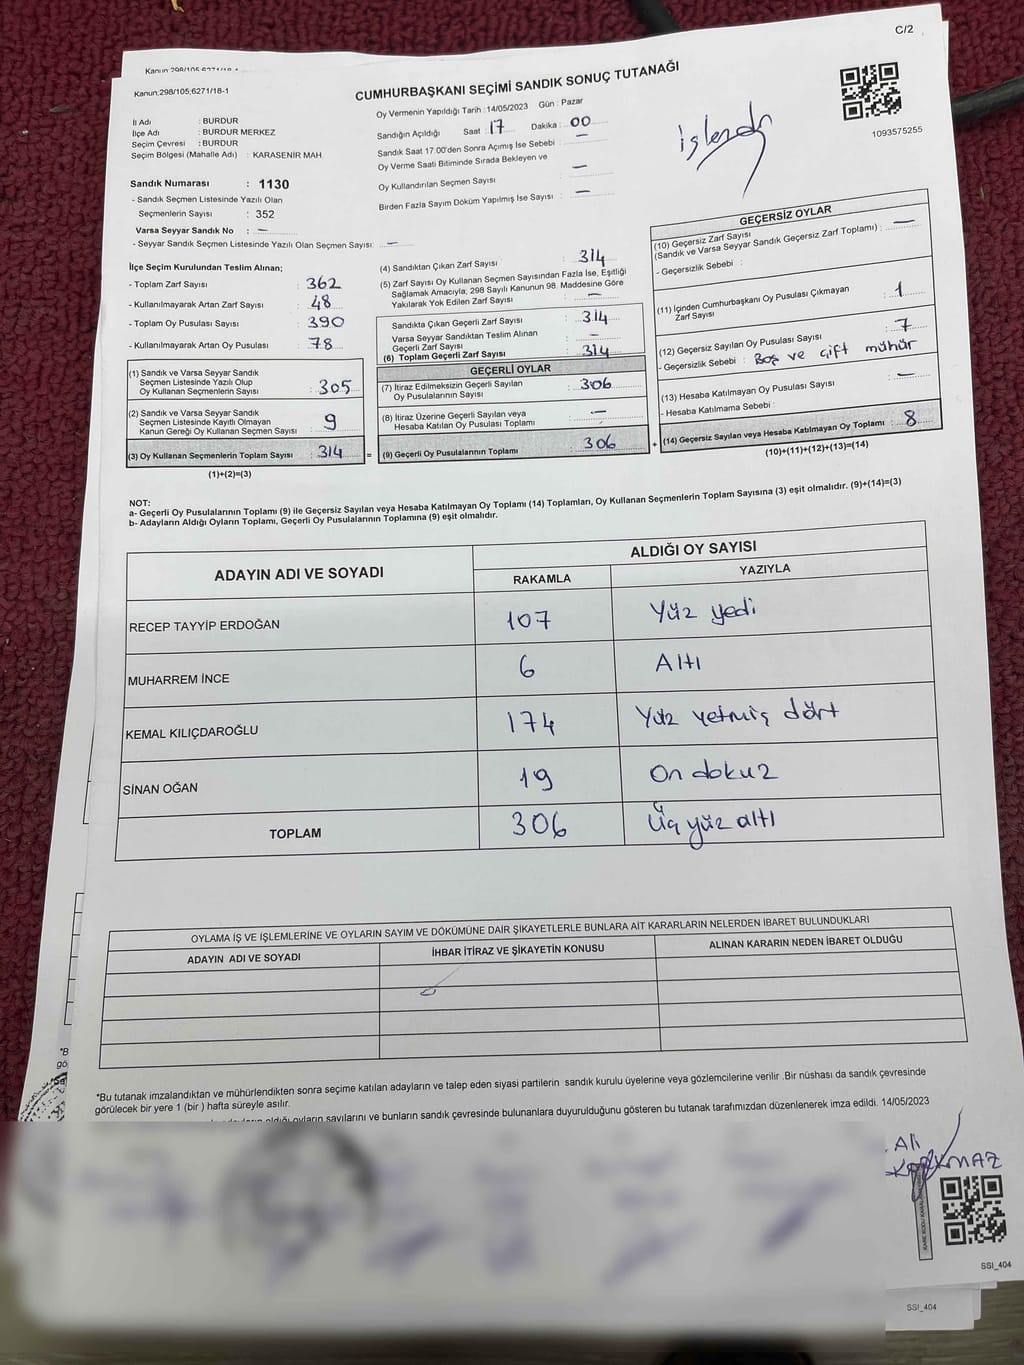 C/2
Kanun 298/105;6271/18-1
Kanun;298/105;6271/18-1
CUMHURBAŞKANI SEÇİMİ SANDIK SONUÇ TUTANAĞI
1093575255
işlendi
İl Adı : BURDUR
İlçe Adı : BURDUR MERKEZ
Seçim Çevresi : BURDUR
Seçim Bölgesi (Mahalle Adı) : KARASENİR MAH.
Sandık Numarası : 1130
- Sandık Seçmen Listesinde Yazılı Olan
Seçmenlerin Sayısı : 352
Varsa Seyyar Sandık No : —
- Seyyar Sandık Seçmen Listesinde Yazılı Olan Seçmen Sayısı: —
Oy Vermenin Yapıldığı Tarih : 14/05/2023 Gün : Pazar
Sandığın Açıldığı Saat : 17 Dakika : 00
Sandık Saat 17:00'den Sonra Açımış İse Sebebi : —
Oy Verme Saati Bitiminde Sırada Bekleyen ve
Oy Kullandırılan Seçmen Sayısı : —
Birden Fazla Sayım Döküm Yapılmış İse Sayısı : —
İlçe Seçim Kurulundan Teslim Alınan;
- Toplam Zarf Sayısı : 362
- Kullanılmayarak Artan Zarf Sayısı : 48
- Toplam Oy Pusulası Sayısı : 390
- Kullanılmayarak Artan Oy Pusulası : 78
(1) Sandık ve Varsa Seyyar Sandık
Seçmen Listesinde Yazılı Olup
Oy Kullanan Seçmenlerin Sayısı : 305
(2) Sandık ve Varsa Seyyar Sandık
Seçmen Listesinde Kayıtlı Olmayan
Kanun Gereği Oy Kullanan Seçmen Sayısı : 9
(3) Oy Kullanan Seçmenlerin Toplam Sayısı : 314
(1)+(2)=(3)
(4) Sandıktan Çıkan Zarf Sayısı : 314
(5) Zarf Sayısı Oy Kullanan Seçmen Sayısından Fazla İse, Eşitliği
Sağlamak Amacıyla, 298 Sayılı Kanunun 98. Maddesine Göre
Yakılarak Yok Edilen Zarf Sayısı : —
Sandıkta Çıkan Geçerli Zarf Sayısı : 314
Varsa Seyyar Sandıktan Teslim Alınan
Geçerli Zarf Sayısı : —
(6) Toplam Geçerli Zarf Sayısı : 314
GEÇERLİ OYLAR
(7) İtiraz Edilmeksizin Geçerli Sayılan
Oy Pusulalarının Sayısı : 306
(8) İtiraz Üzerine Geçerli Sayılan veya
Hesaba Katılan Oy Pusulası Toplamı : —
(9) Geçerli Oy Pusulalarının Toplamı : 306
GEÇERSİZ OYLAR
(10) Geçersiz Zarf Sayısı
(Sandık ve Varsa Seyyar Sandık Geçersiz Zarf Toplamı) : —
- Geçersizlik Sebebi :
(11) İçinden Cumhurbaşkanı Oy Pusulası Çıkmayan
Zarf Sayısı : 1
(12) Geçersiz Sayılan Oy Pusulası Sayısı : 7
- Geçersizlik Sebebi : Boş ve çift mühür
(13) Hesaba Katılmayan Oy Pusulası Sayısı : —
- Hesaba Katılmama Sebebi :
(14) Geçersiz Sayılan veya Hesaba Katılmayan Oy Toplamı : 8
(10)+(11)+(12)+(13)=(14)
NOT:
a- Geçerli Oy Pusulalarının Toplamı (9) ile Geçersiz Sayılan veya Hesaba Katılmayan Oy Toplamı (14) Toplamları, Oy Kullanan Seçmenlerin Toplam Sayısına (3) eşit olmalıdır. (9)+(14)=(3)
b- Adayların Aldığı Oyların Toplamı, Geçerli Oy Pusulalarının Toplamına (9) eşit olmalıdır.
ADAYIN ADI VE SOYADI ALDIĞI OY SAYISI
RAKAMLA YAZIYLA
RECEP TAYYİP ERDOĞAN 107 Yüz yedi
MUHARREM İNCE 6 Altı
KEMAL KILIÇDAROĞLU 174 Yüz yetmiş dört
SİNAN OĞAN 19 On dokuz
TOPLAM 306 Üç yüz altı
OYLAMA İŞ VE İŞLEMLERİNE VE OYLARIN SAYIM VE DÖKÜMÜNE DAİR ŞİKAYETLERLE BUNLARA AİT KARARLARIN NELERDEN İBARET BULUNDUKLARI
ADAYIN ADI VE SOYADI İHBAR İTİRAZ VE ŞİKAYETİN KONUSU ALINAN KARARIN NEDEN İBARET OLDUĞU
*Bu tutanak imzalandıktan ve mühürlendikten sonra seçime katılan adayların ve talep eden siyasi partilerin sandık kurulu üyelerine veya gözlemcilerine verilir .Bir nüshası da sandık çevresinde
görülecek bir yere 1 (bir ) hafta süreyle asılır.
aldığı oyların sayılarını ve bunların sandık çevresinde bulunanlara duyurulduğunu gösteren bu tutanak tarafımızdan düzenlenerek imza edildi. 14/05/2023
Ali
KORKMAZ
SSI_404
SSI_404